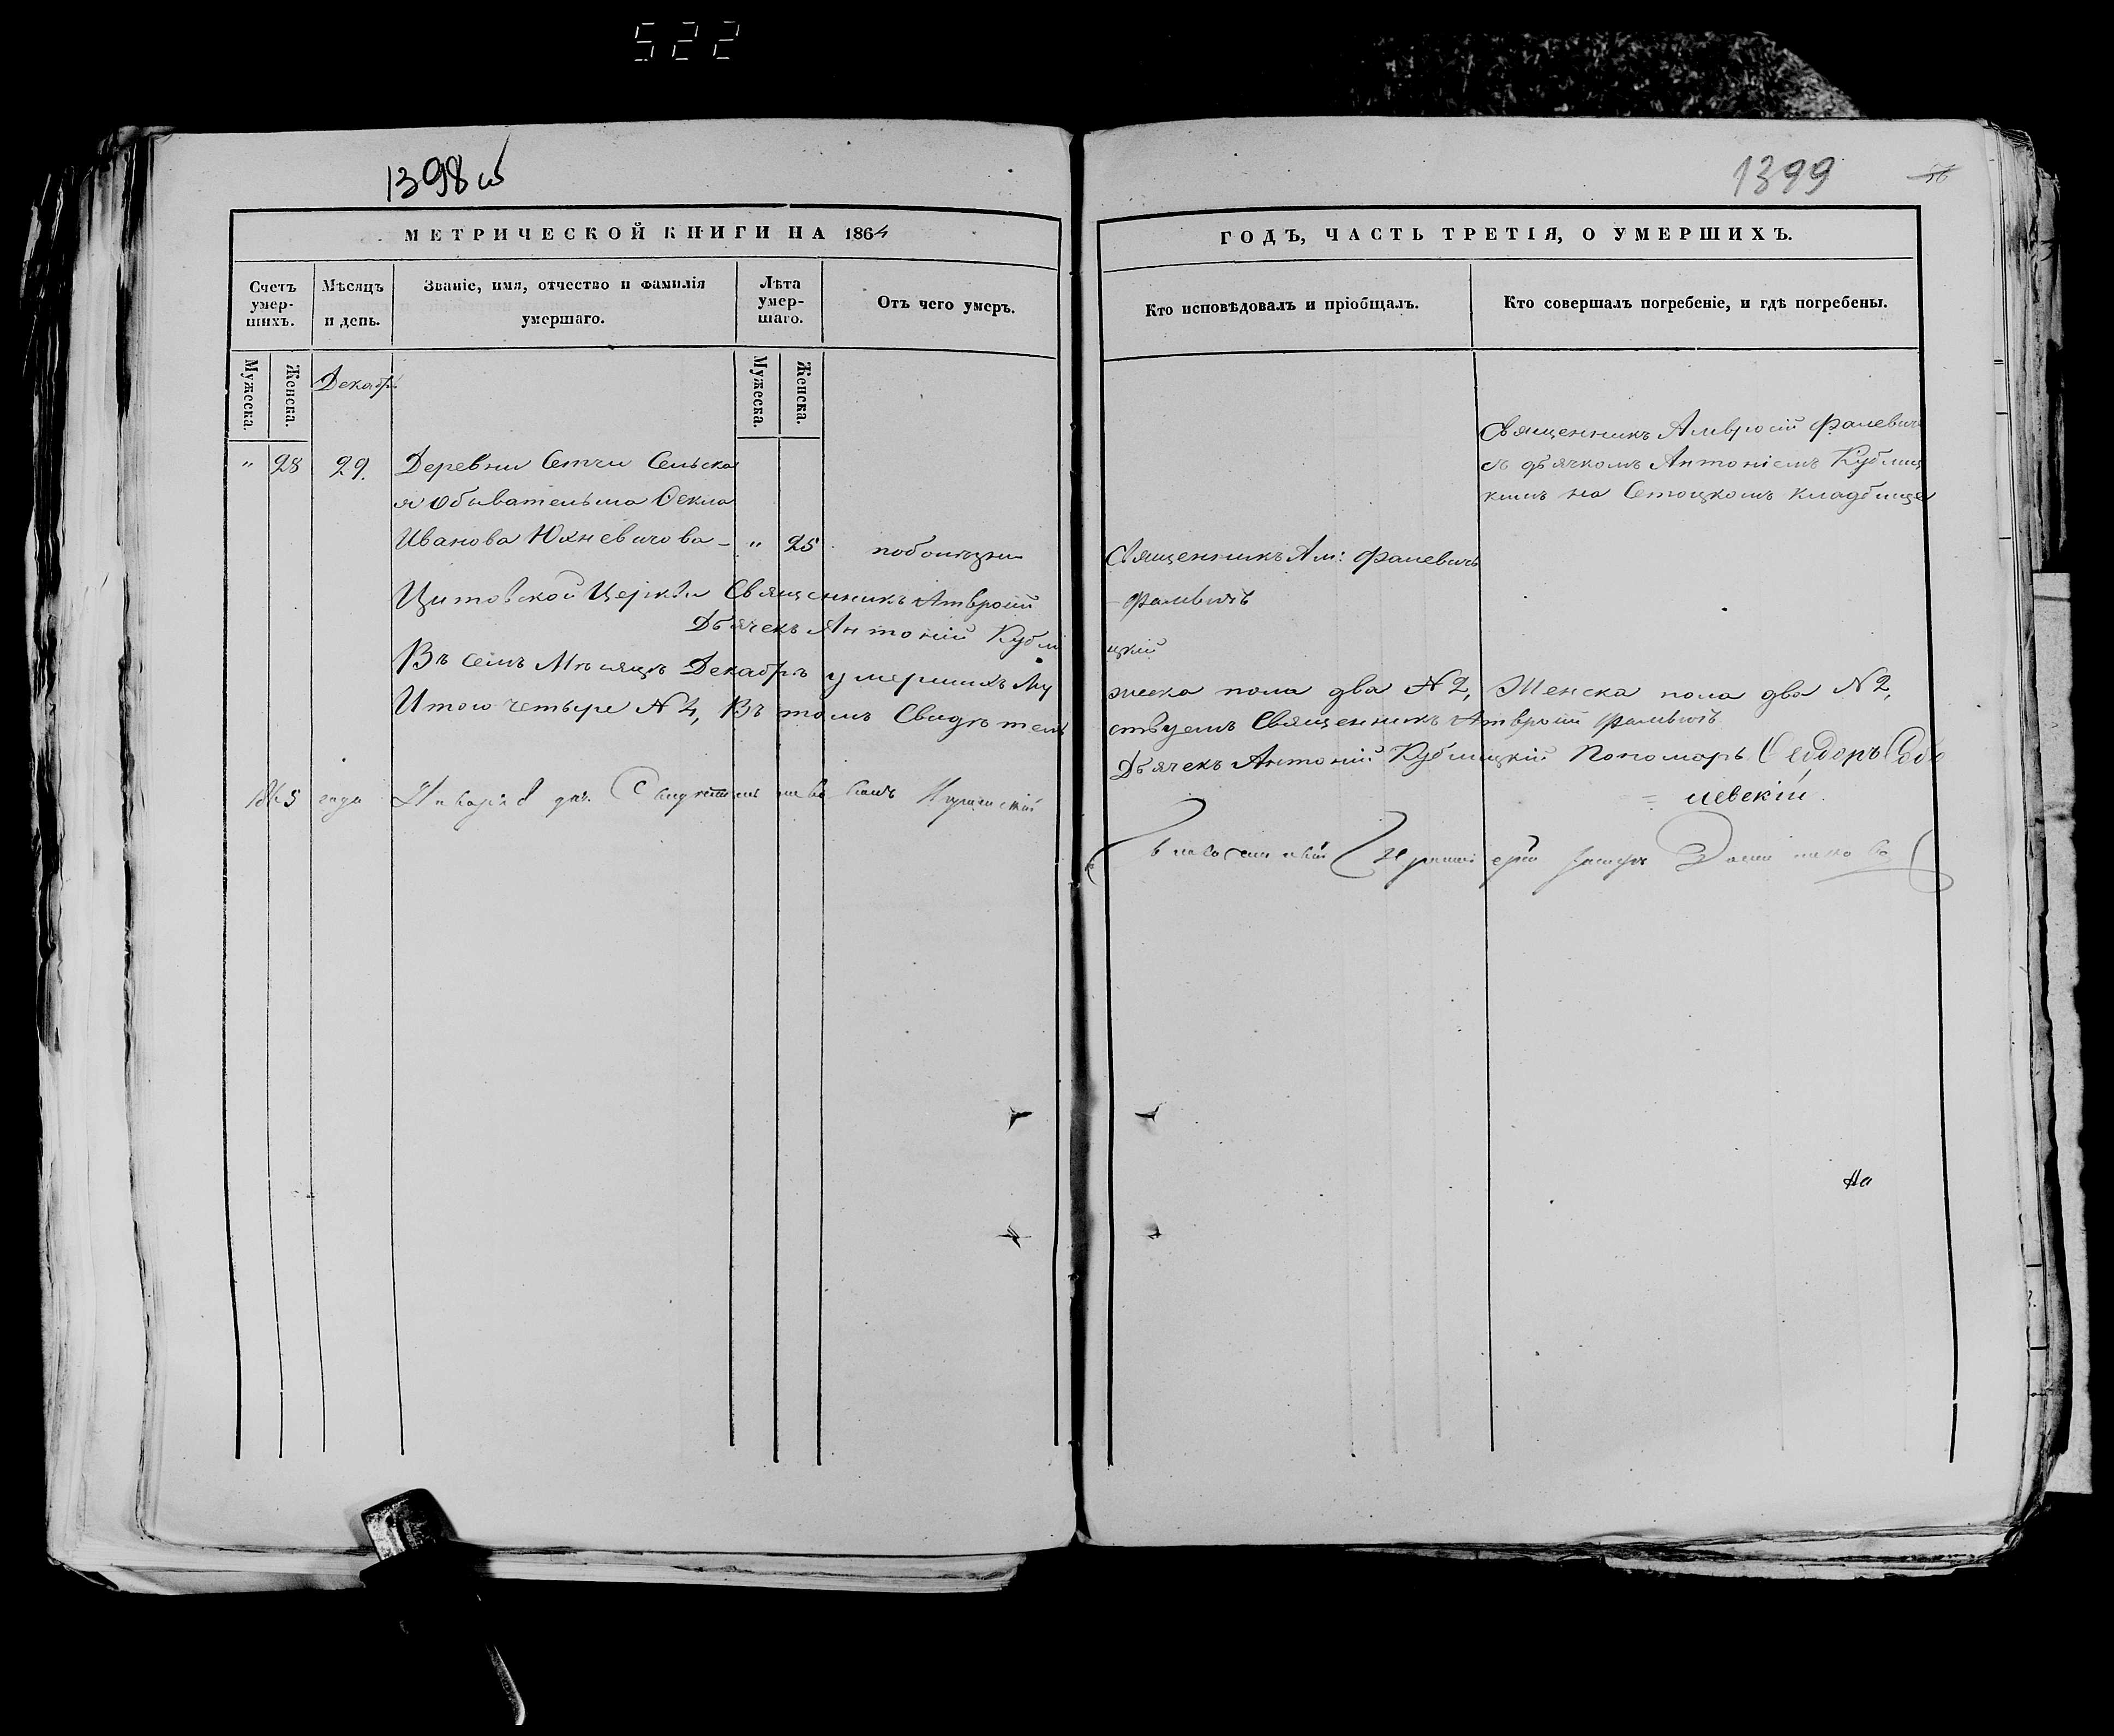 522
1398 об
1399
МЕТРИЧЕСКОЙ КНИГИ НА 1864
ГОДЪ, ЧАСТЬ ТРЕТІЯ, О УМЕРШИХЪ.
Счетъ умер-шихъ.
Мѣсяцъ и день.
Званіе, имя, отчество и фамилія
умершаго.
Лѣта умер-шаго.
Отъ чего умеръ.
Кто исповѣдовалъ и пріобщалъ.
Кто совершалъ погребеніе, и гдѣ погребены.
Мужеска.
Женска.
Декабрь
Мужеска.
Женска.
" 28 29. Деревни Сетчи Сельска
я обывательша Ѳекла
Иванова Юхневичова - " 25 по болѣзни
Священникъ Ам: Фалевичъ
Священникъ Амвросій Фалевичъ
съ дьячкомъ Антоніемъ Кублиц
кимъ на Сетоцкомъ кладбище
Цитовской Церкви Священникъ Амвросій
Фалевичъ
Дьячекъ Антоній Кубли
цкій
Въ семъ Мѣсяцѣ Декабрѣ умершихъ Му
жеска пола два N 2, Женска пола два N 2,
Итого четыре N 4, Въ томъ Свидѣтель
ствуемъ Священникъ Амвросій Фалевичъ
Дьячекъ Антоній Кублицкій Пономарь
левскій.
1865 года Января 8 дня.
На